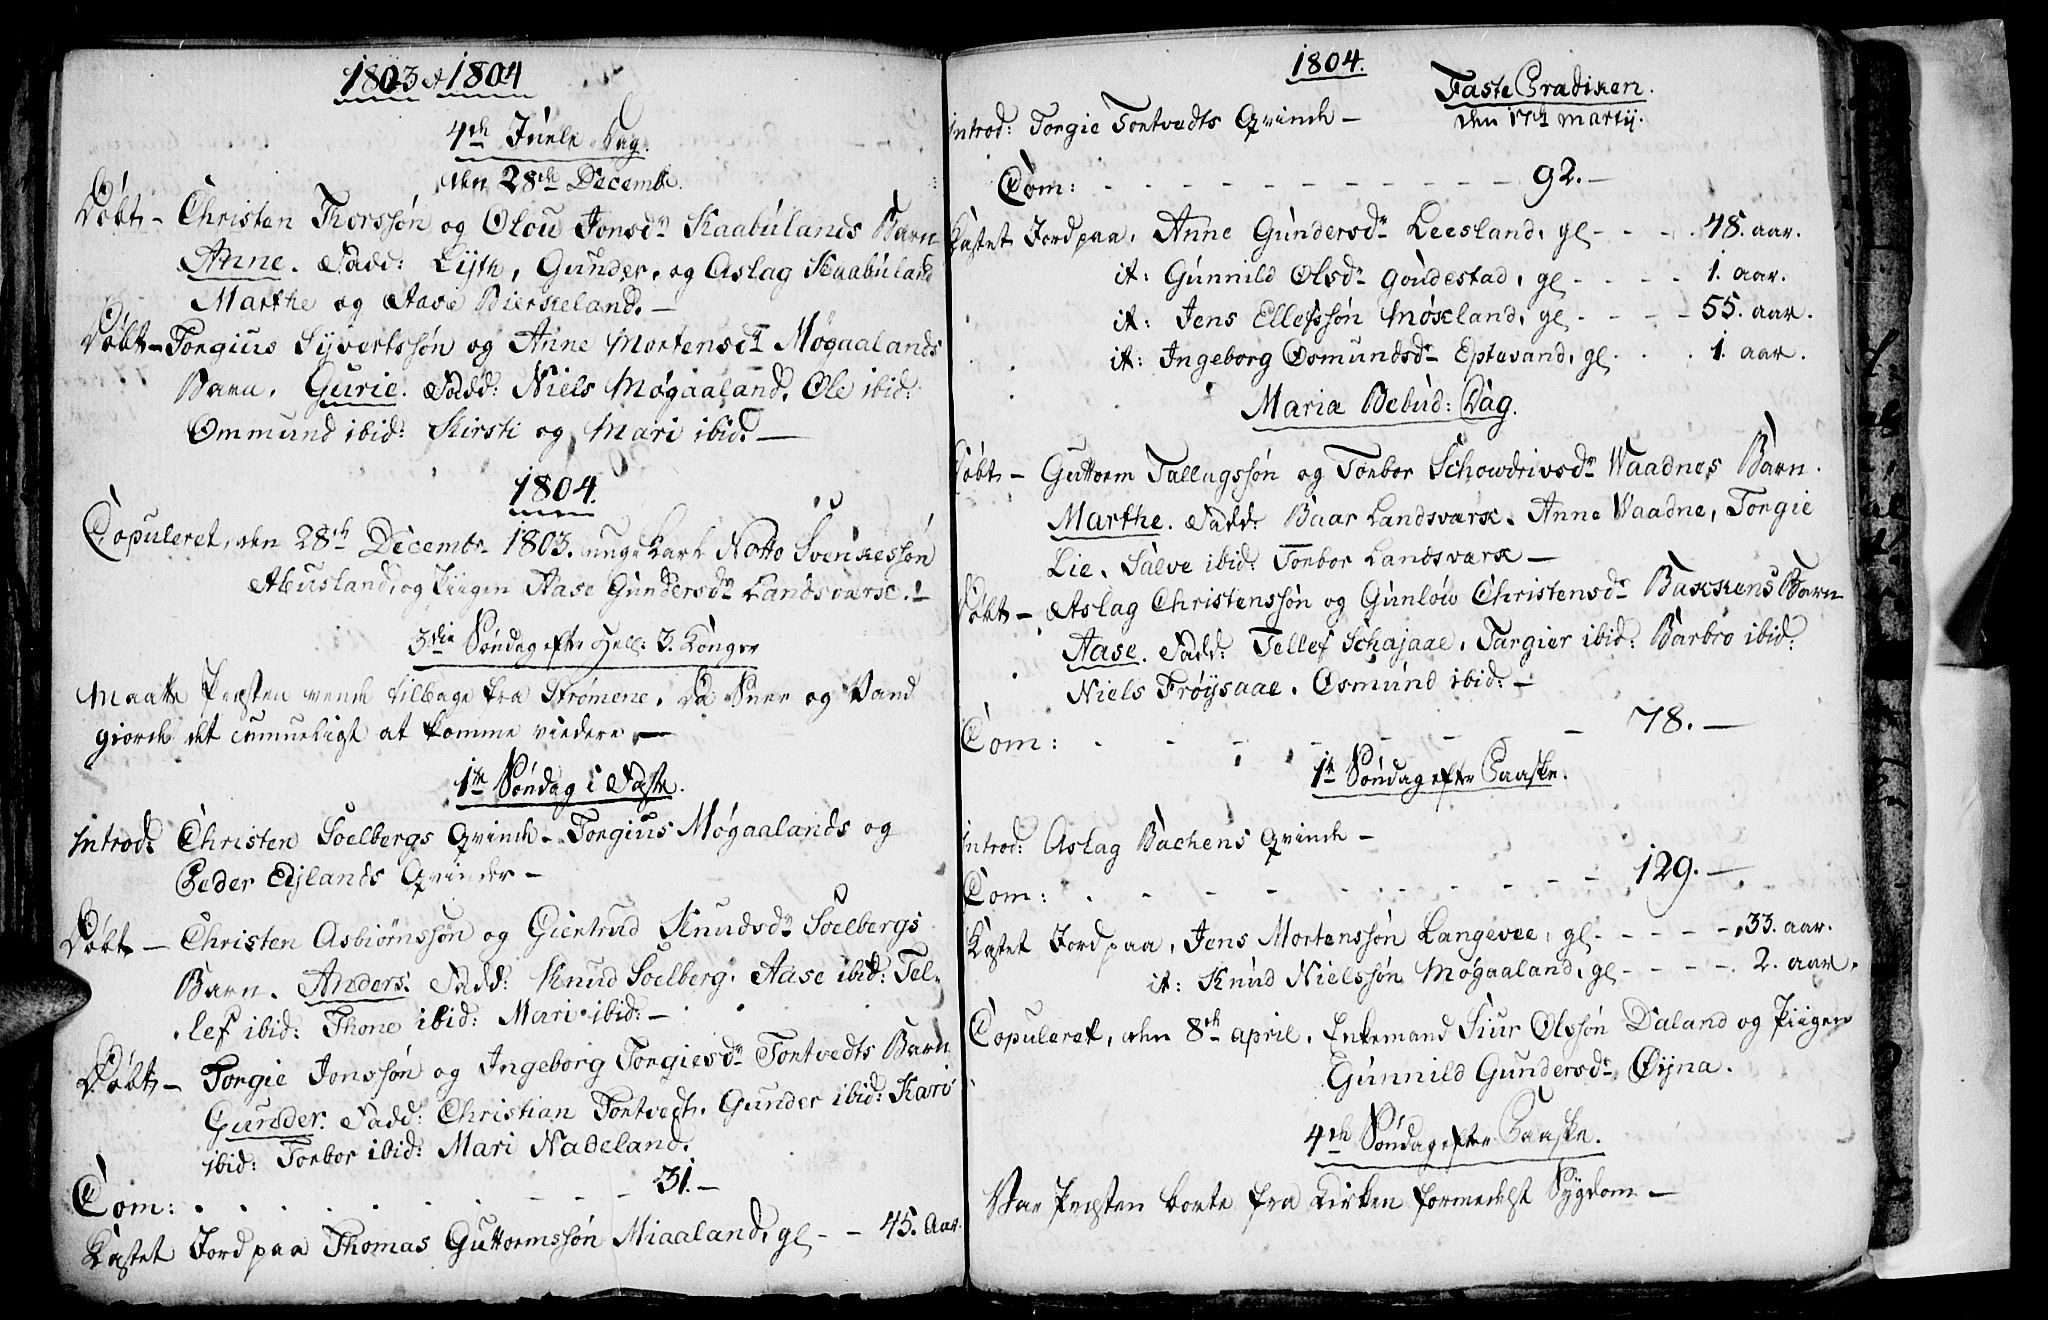 1803 et 1804
4de Juule Dag.
den 28de Decembr.
Døbt – Christen Thorssøn og Olou Jonsdr Kaabulands Barn
Anne. Fadd: Lijth, Gunder, og Aslag Kaabuland
Marthe og Aase Bierkeland. –
Døbt – Torgius Syvertssøn og Anne Mortensdr Møgaalands
Barn. Gurie. Fadd: Niels Møgaaland. Ole ibid:
Ommund ibid: Kirsti og Mari ibid. –
1804.
Copuleret, den 28de Decembr. 1803. unge Karl Notto Svenkessøn
Abusland, og Piigen Aase Gundersdr Landsværk. –
3die Søndag efter Hell: 3. Konger
Maatte Præsten vende tilbage fra Strømene, da Snee og Vand
giorde det umueligt at komme viedere –
1te Søndag i Faste.
Introd: Christen Soelbergs Qvinde – Torgius Møgaalands og
Peder Eijlands Qvinder –
Døbt – Christen Asbiørnssøn og Giertrud Knudsdr Soelbergs
Barn. Anders. Fadd: Knud Soelberg. Aase ibid: Tel-
lef ibid: Thone ibid: Mari ibid: –
Døbt – Torgie Jonssøn og Ingeborg Torgiesdr Tontvedts Barn
Gunder. Fadd: Christian Tontvedt. Gunder ibid: Kari
ibid: Torbor ibid: Mari Nadeland.
Com: . . . . . . 31. –
Kastet Jord paa Thomas Guttormssøn Miaaland, gl – – 45. Aar.
1804.
Faste Prædiken.
den 17de Martij.
Introd: Torgie Tontvedts Qvinde –
Com: - - - - - - 92. –
Kastet Jord paa, Anne Gundersdr Leesland, gl - - - 48. aar.
it: Gunnild Olsdr Goudestad, gl - - - - 1. aar.
it: Jens Ellefssøn Møkland, gl - - - - 55. aar.
it: Ingeborg Osmundsdr Eptevand, gl - - - 1. aar.
Maria Bebud: Dag.
Døbt – Guttorm Tallugssøn og Torbor Schowdrivsdr Waadnes Barn.
Marthe. Fadd: Baar Landsværk. Anne Waadne, Torgie
Lie. Salve ibid: Torbor Landsværk –
Døbt – Aslag Christenssøn og Gunlow Christensdr Bakkens Barn
Aase. Fadd: Tellef Schajaae, Targier ibid: Barbro ibid:
Niels Frøysaae. Osmund ibid: –
Com: . - - - - - - 78. –
1te Søndag efter Paaske.
Introd: Aslag Bachens Qvinde –
Com: . - - - - - - 129. –
Kastet Jord paa, Jens Mortenssøn Langevee, gl - - - - - 33. aar.
it: Knud Nielssøn Møgaaland, gl - - - - 2. aar.
Copuleret, den 8de april, Enkemand Siur Olssøn Daland og Piigen
Gunnild Gundersdr Øyna.
4de Søndag efter Paaske.
Var Præsten borte fra Kirken formedelst Sygdom –